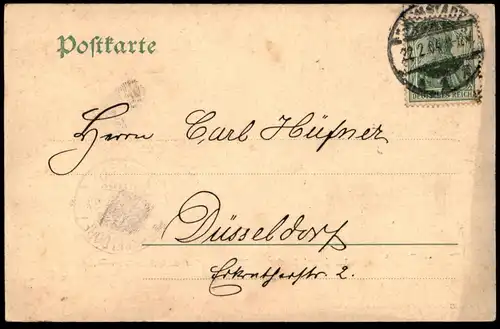 Postkarte
22.2.04
DEUTSCHES REICH
Herrn Carl Hüfner
Düsseldorf
Erkratherstr. 2.